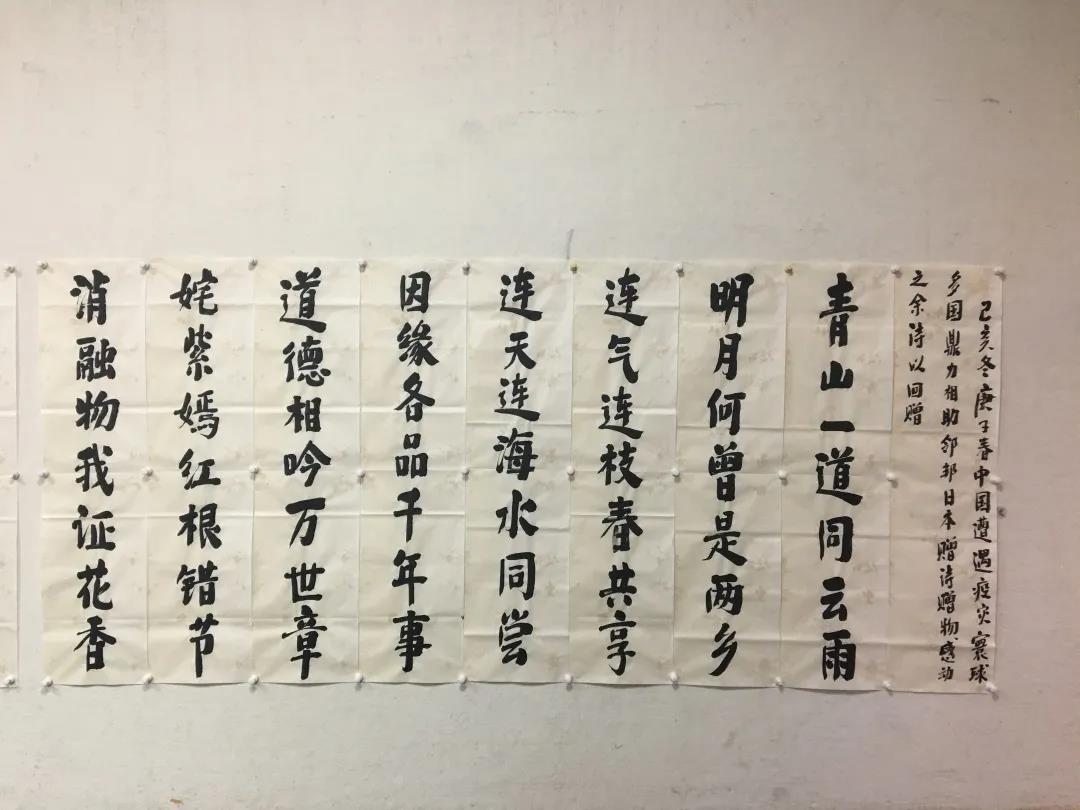 己亥冬庚子春中国遭遇疫灾寰球
多国鼎力相助邻邦日本赠诗赠物感动
之余诗以回赠
青山一道同云雨
明月何曾是两乡
连气连枝春共享
连天连海水同尝
因缘各品千年事
道德相吟万世章
姹紫嫣红根错节
消融物我证花香